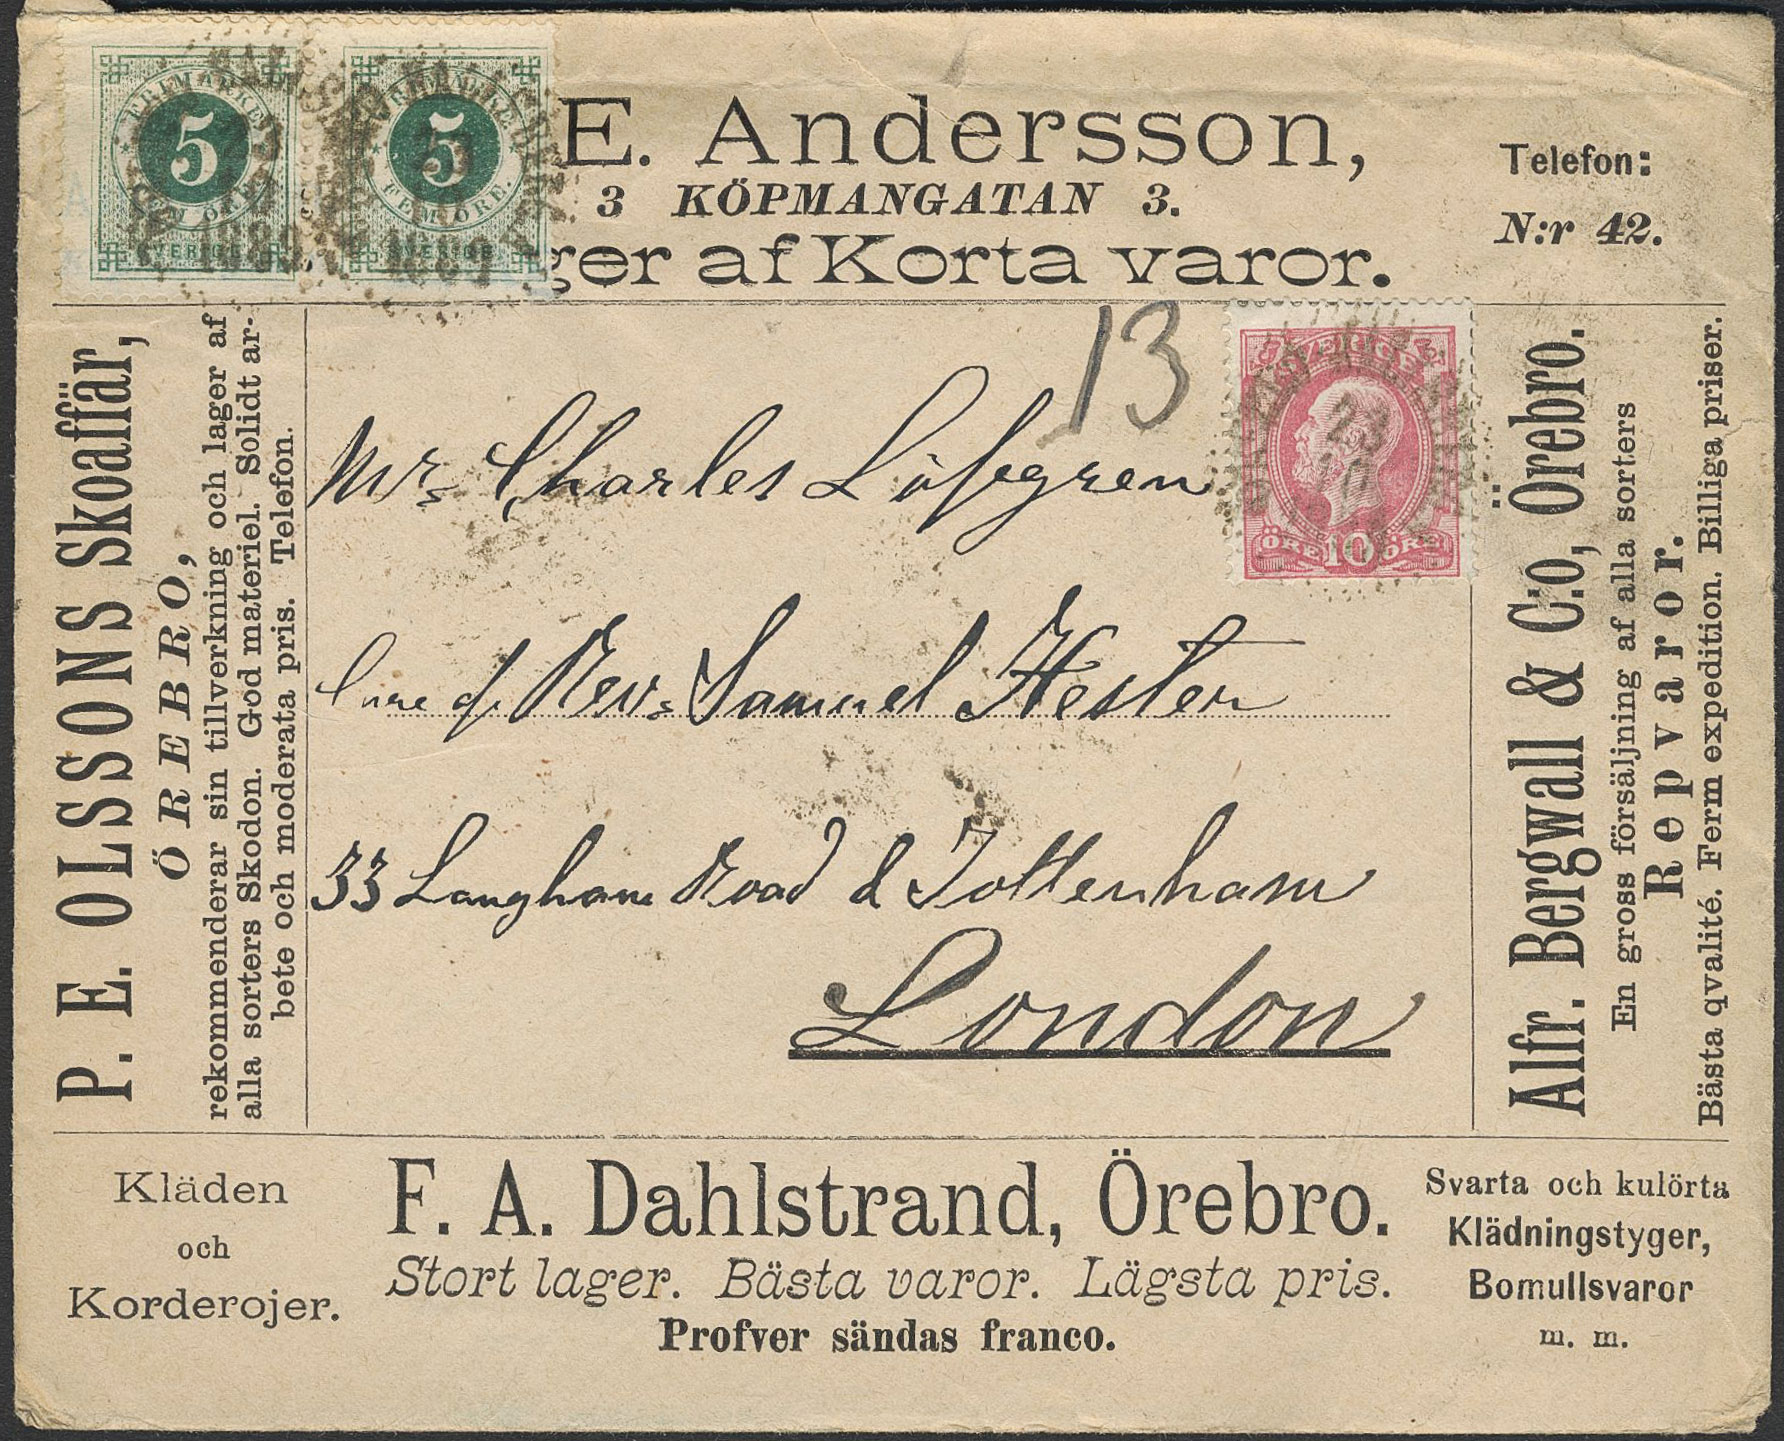 E. Andersson,
3 KÖPMANGATAN 3.
ger af Korta varor.
Telefon:
N:r 42.
FRIMÄRKE
5
FEM ÖRE.
SVERIGE
1889
FRIMÄRKE
5
FEM ÖRE.
SVERIGE
1889
SVERIGE
23
10
ÖRE 10 ÖRE
13
P. E. OLSSONS Skoaffär,
ÖREBRO,
rekommenderar sin tillverkning och lager af
alla sorters Skodon. God materiel. Solidt ar-
bete och moderata pris. Telefon.
Mr. Charles Löfvgren
Care of Rev. Samuel Hester
33 Langham Road d Tottenham
London
Alfr. Bergwall & C:o, Örebro.
En gross försäljning af alla sorters
Repvaror.
Bästa qvalité. Ferm expedition. Billiga priser.
Kläden
och
Korderojer.
F. A. Dahlstrand, Örebro.
Stort lager. Bästa varor. Lägsta pris.
Profver sändas franco.
Svarta och kulörta
Klädningstyger,
Bomullsvaror
m. m.